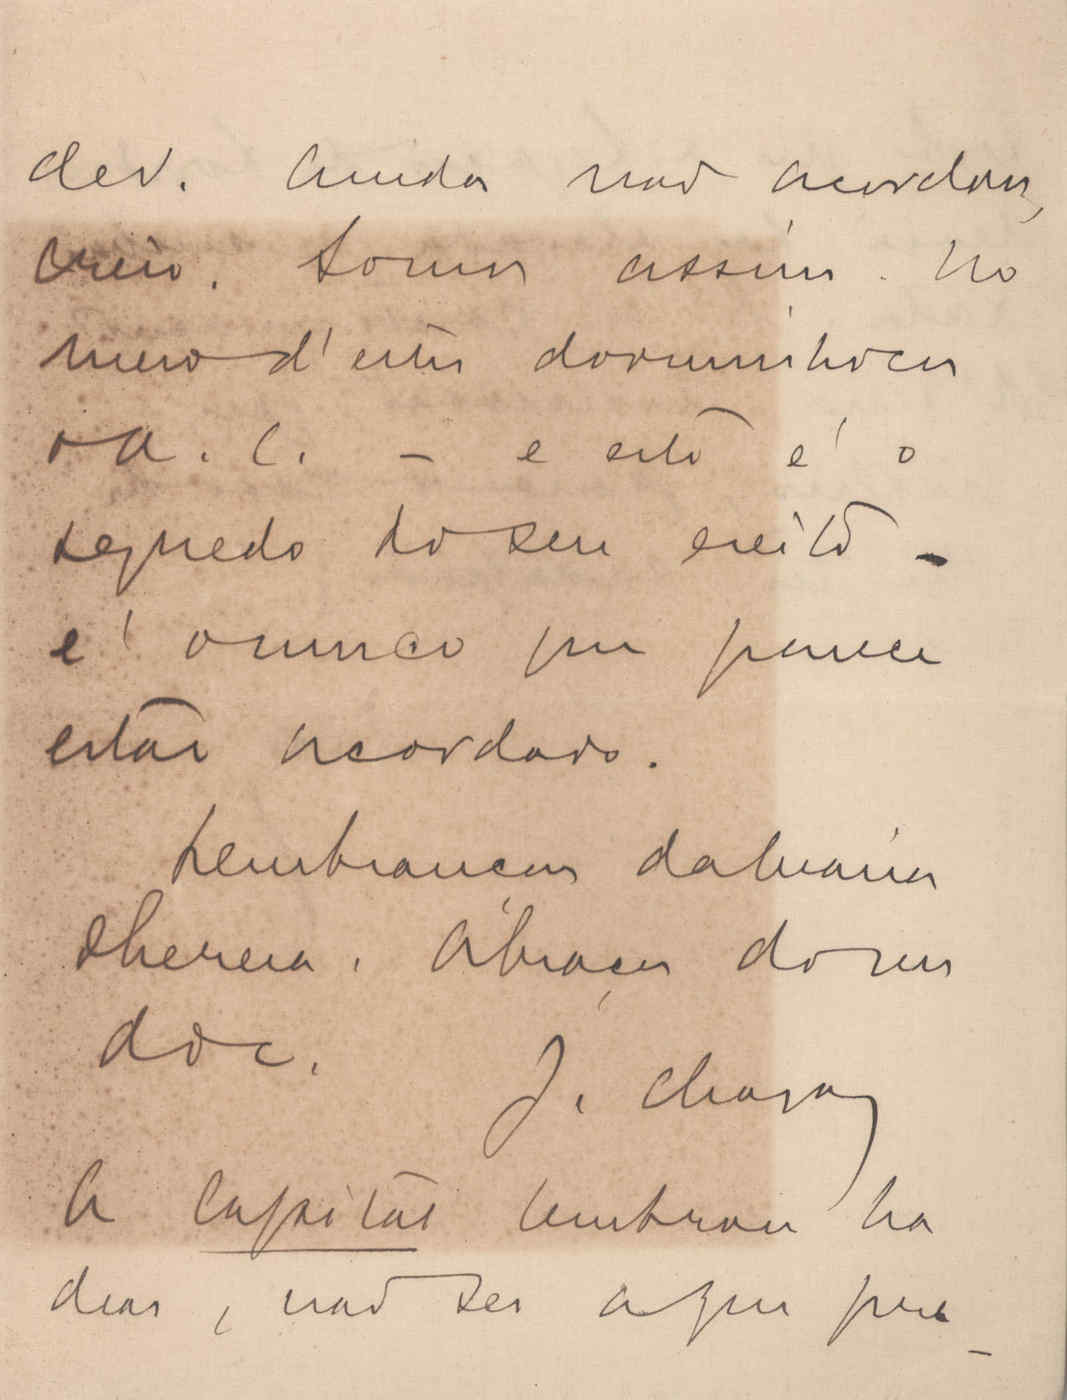 deu. Ainda não acordou,
creio. Somos assim. No
meio d'estes dorminhocos
o A. C. – e está é o
segredo do seu exito –
é o unico que parece
estar acordado.
Lembranças da Maria
Thereza. Abraços do seu
do c.
J. Chagas
A Capital lembrou ha
dias, não sei a que pro-